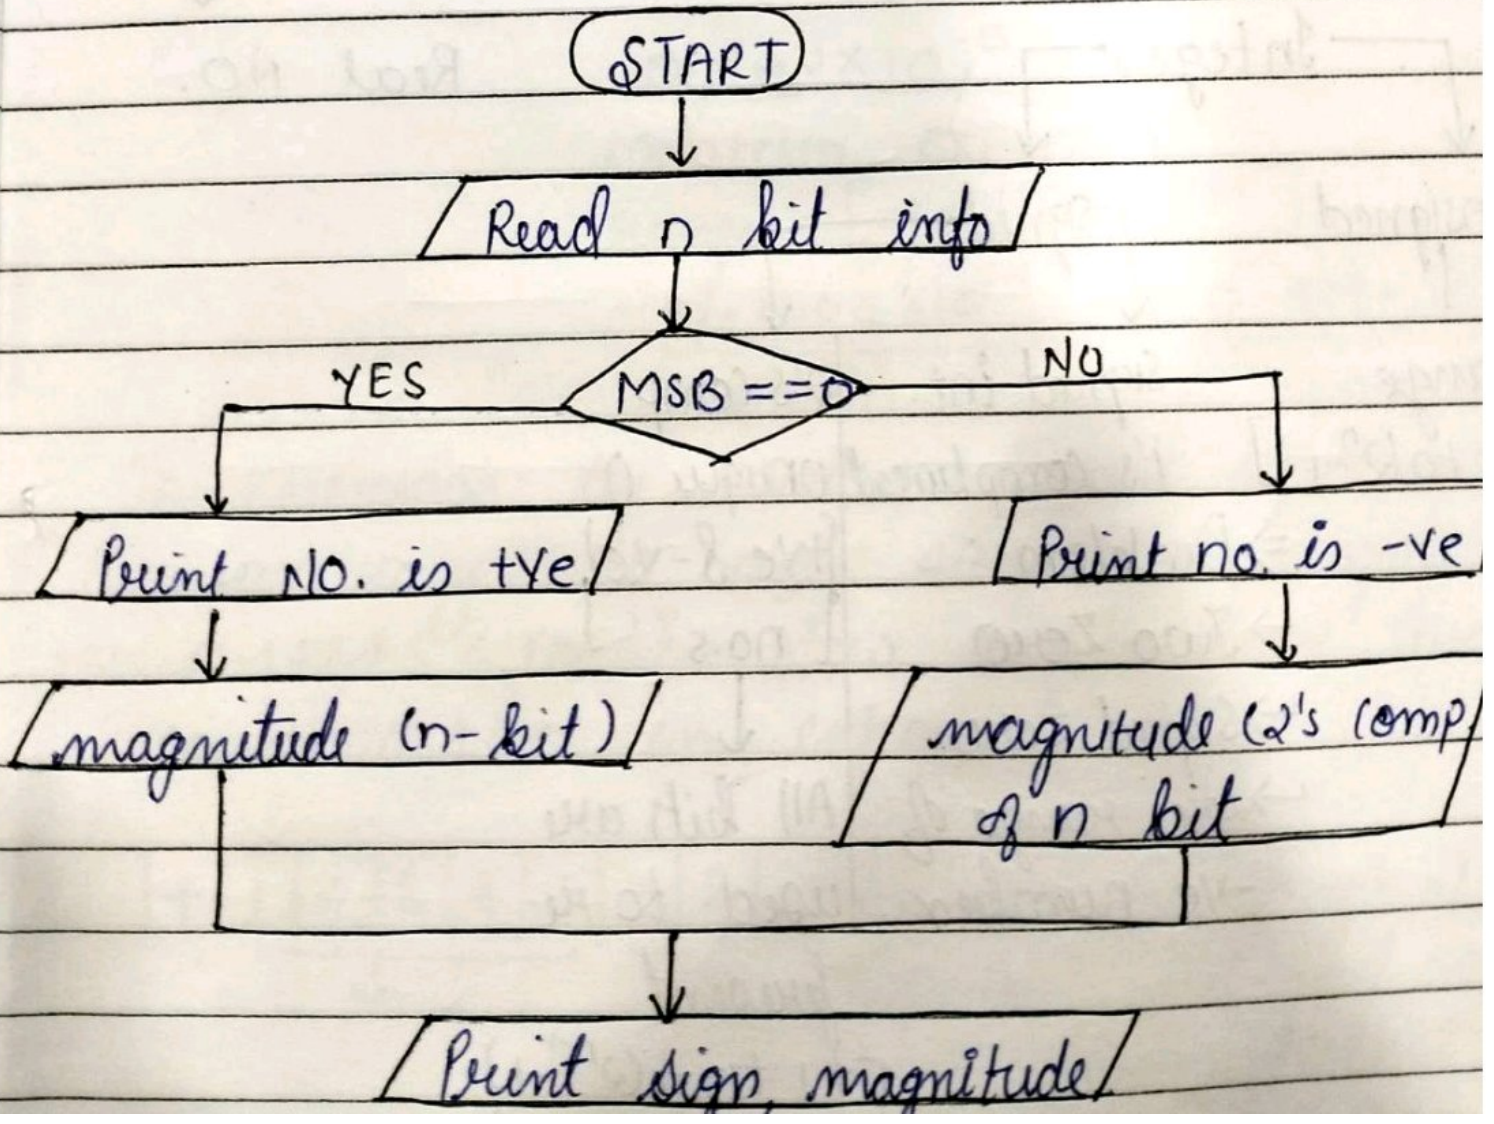 START
Read n bit info
YES
MSB ==0
NO
Print NO. is +ve
Print no. is -ve
magnitude (n-bit)
magnitude (2's comp
of n bit
Print sign, magnitude